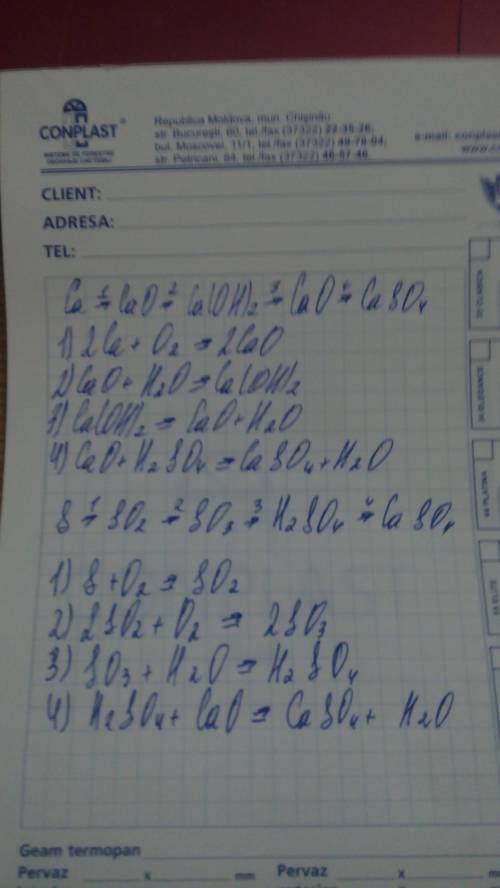 CONPLAST®
Republica Moldova, mun. Chişinău
str. Bucureşti, 60, tel./fax (37322) 22-35-26;
bul. Moscovei, 11/1, tel./fax (37322) 49-79-04;
str. Petricani, 84, tel./fax (37322) 46-57-46.
e-mail: conplas
www.co
CLIENT:
ADRESA:
TEL:
Ca →¹ CaO →² Ca(OH)₂ →³ CaO →⁴ CaSO₄
1) 2Ca + O₂ → 2CaO
2) CaO + H₂O → Ca(OH)₂
3) Ca(OH)₂ → CaO + H₂O
4) CaO + H₂SO₄ → CaSO₄ + H₂O
S →¹ SO₂ →² SO₃ →³ H₂SO₄ →⁴ CaSO₄
1) S + O₂ → SO₂
2) 2SO₂ + O₂ → 2SO₃
3) SO₃ + H₂O → H₂SO₄
4) H₂SO₄ + CaO → CaSO₄ + H₂O
Geam termopan
Pervaz x mm Pervaz x